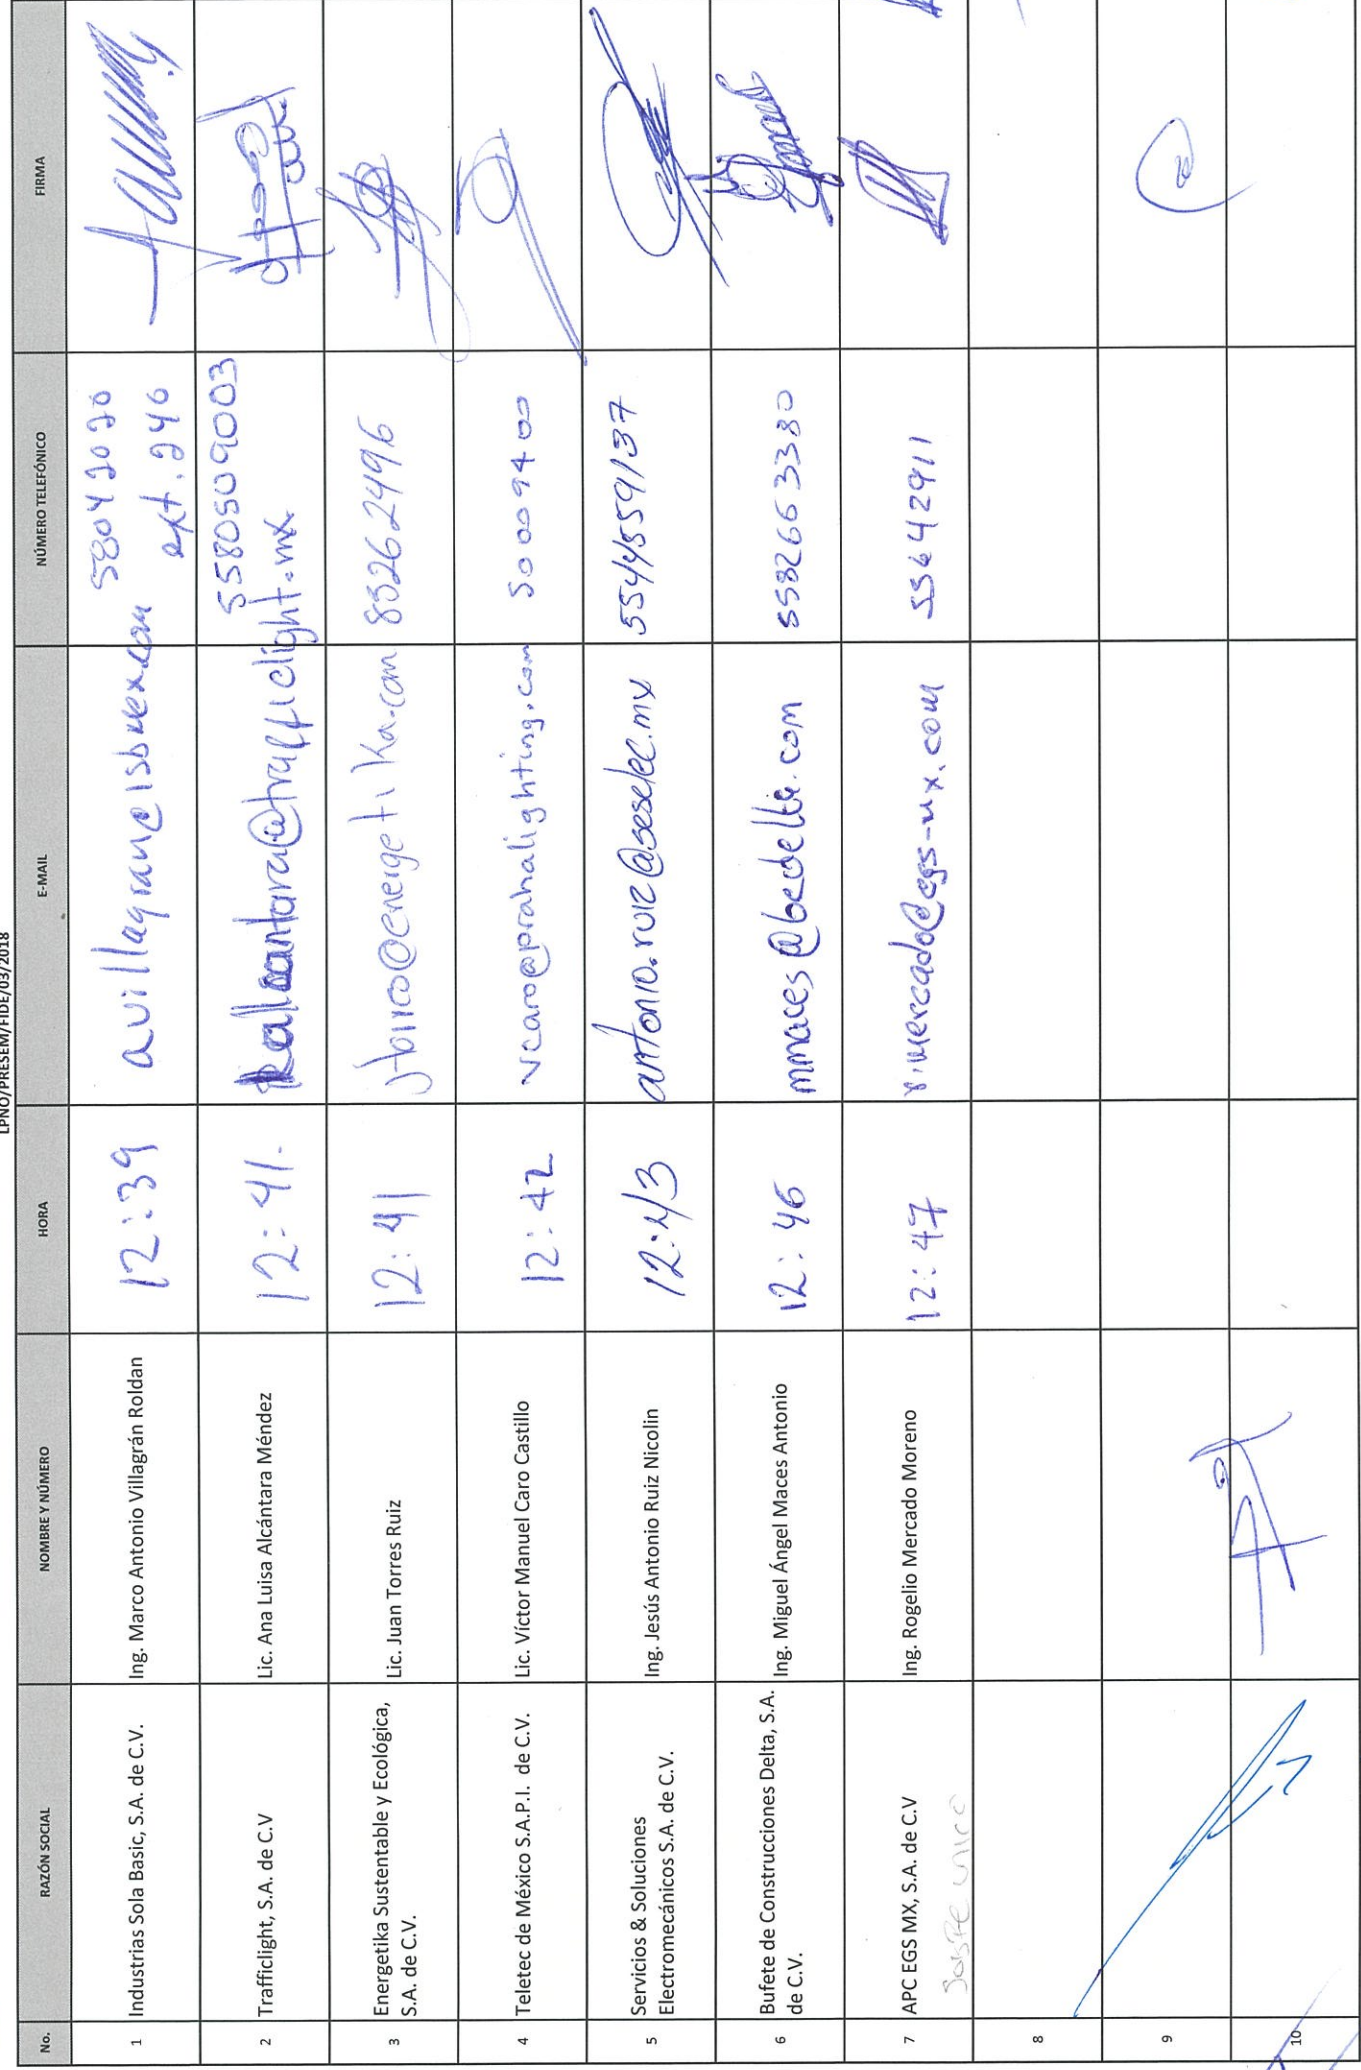 LPNO/PRESEM/FIDE/03/2018
No. RAZÓN SOCIAL NOMBRE Y NÚMERO HORA E-MAIL NÚMERO TELEFÓNICO FIRMA
1 Industrias Sola Basic, S.A. de C.V. Ing. Marco Antonio Villagrán Roldan 12:39 avillagran@isbmex.com 58042020
ext. 246
2 Trafficlight, S.A. de C.V Lic. Ana Luisa Alcántara Méndez 12:41. @trafficlight.mx. 5580509003
3 Energetika Sustentable y Ecológica,
S.A. de C.V. Lic. Juan Torres Ruiz 12:41 @energetika.com 85262496
4 Teletec de México S.A.P.I. de C.V. Lic. Víctor Manuel Caro Castillo 12:42 vcaro@prahalighting.com 50009400
5 Servicios & Soluciones
Electromecánicos S.A. de C.V. Ing. Jesús Antonio Ruiz Nicolin 12:43 antonio.ruiz@seselec.mx 5544559137
6 Bufete de Construcciones Delta, S.A.
de C.V. Ing. Miguel Ángel Maces Antonio 12:46 mmaces@bcdelta.com 5582663380
7 APC EGS MX, S.A. de C.V Ing. Rogelio Mercado Moreno 12:47 r.mercado@egs-mx.com 55642911
sobre unico
8
9
10